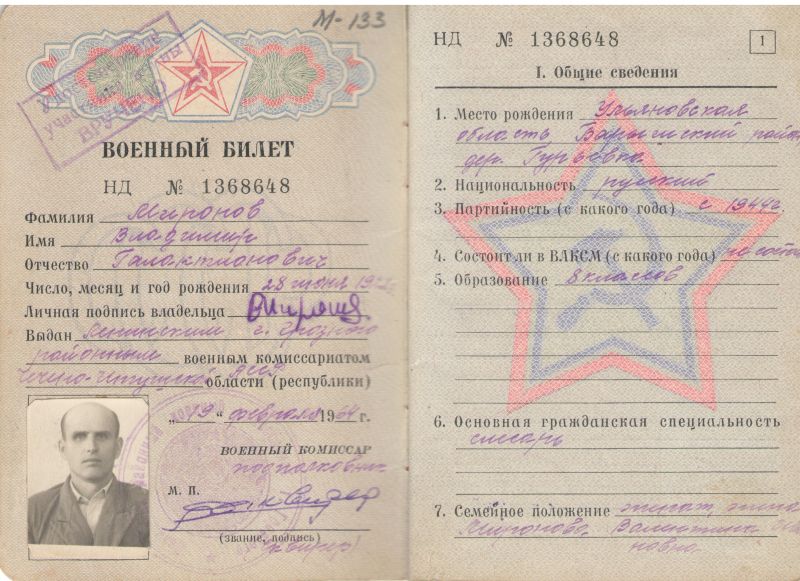 М-133
ВРУЧЕНО
ВОЕННЫЙ БИЛЕТ
НД № 1368648
Фамилия Миронов
Имя Владимир
Отчество Галактионович
Число, месяц и год рождения 28 июня
Личная подпись владельца
Выдан Ленинским г. Грозного
районным военным комиссариатом
Чечено-Ингушской АССР области (республики)
"19" февраля 1964 г.
ВОЕННЫЙ КОМИССАР
подполковник
М. П.
(звание, подпись)
НД № 1368648
1
I. Общие сведения
1. Место рождения Ульяновская
область Барышский район
дер. Гурьевка
2. Национальность русский
3. Партийность (с какого года) с 1944г.
4. Состоял ли в ВЛКСМ (с какого года) не состоял
5. Образование 8 классов
6. Основная гражданская специальность
слесарь
7. Семейное положение женат, жена
Миронова Валентина
новна